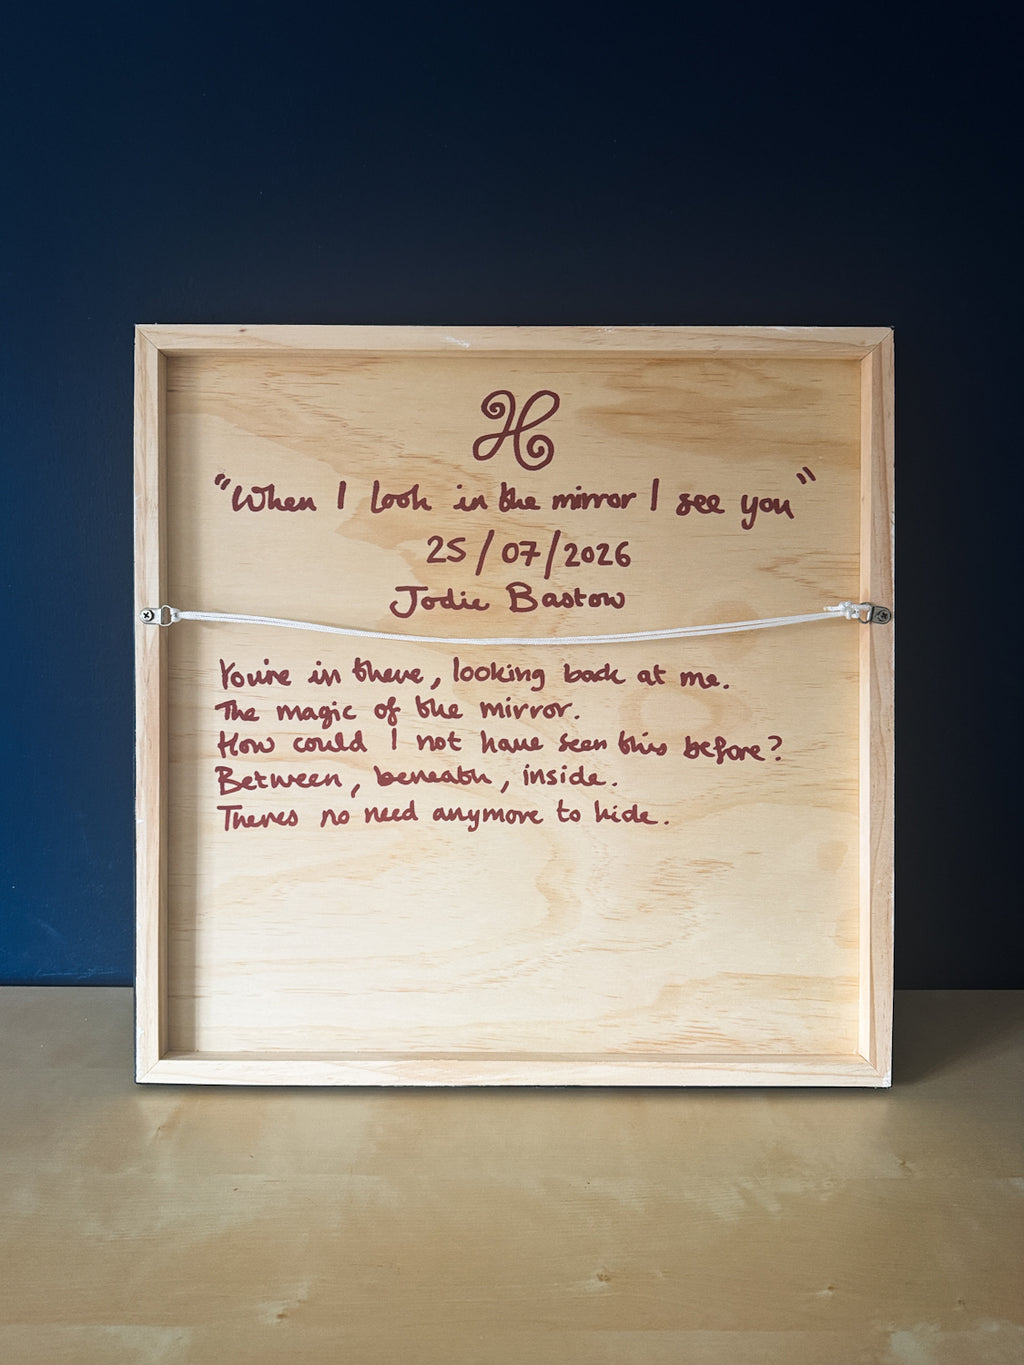 "When I look in the mirror I see you"
25/07/2026
Jodie Bastow
You're in there, looking back at me.
The magic of the mirror.
How could I not have seen this before?
Between, beneath, inside.
Theres no need anymore to hide.